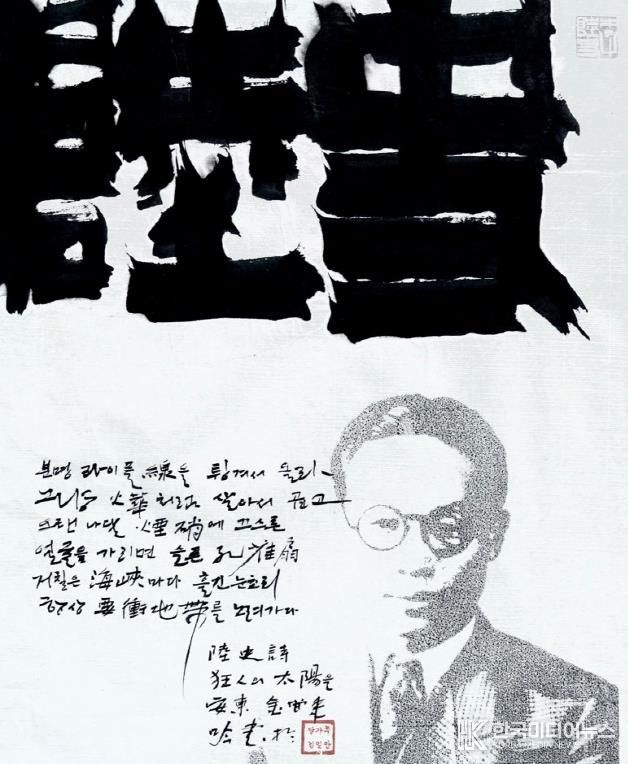 분명 라이플 線을 튕겨서 올라
그냥 火華처럼 살아서 곱고
오랜 나달 煙硝에 끄스른
얼굴을 가리면 슬픈 孔雀扇
거칠은 海峽마다 흘긴 눈초리
항상 要衝地帶를 노려가다
陸史詩
狂人의 太陽을
安東 金
한국미디어뉴스
KOREA MEDIA NEWS